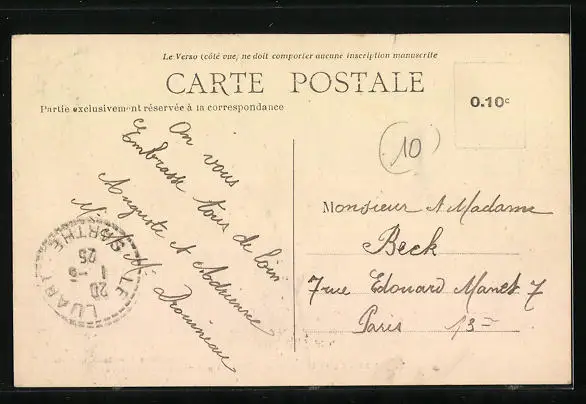 Le Verso (côté vue) ne doit comporter aucune inscription manuscrite
CARTE POSTALE
Partie exclusivement réservée à la correspondance
0.10c
(10)
On vous
Embrasse tous de loin
Auguste et Adrienne
Drouineau
LE LUART
SARTHE
20
1-6
25
Monsieur et Madame
Beck
7 rue Edouard Manet 7
Paris 13e